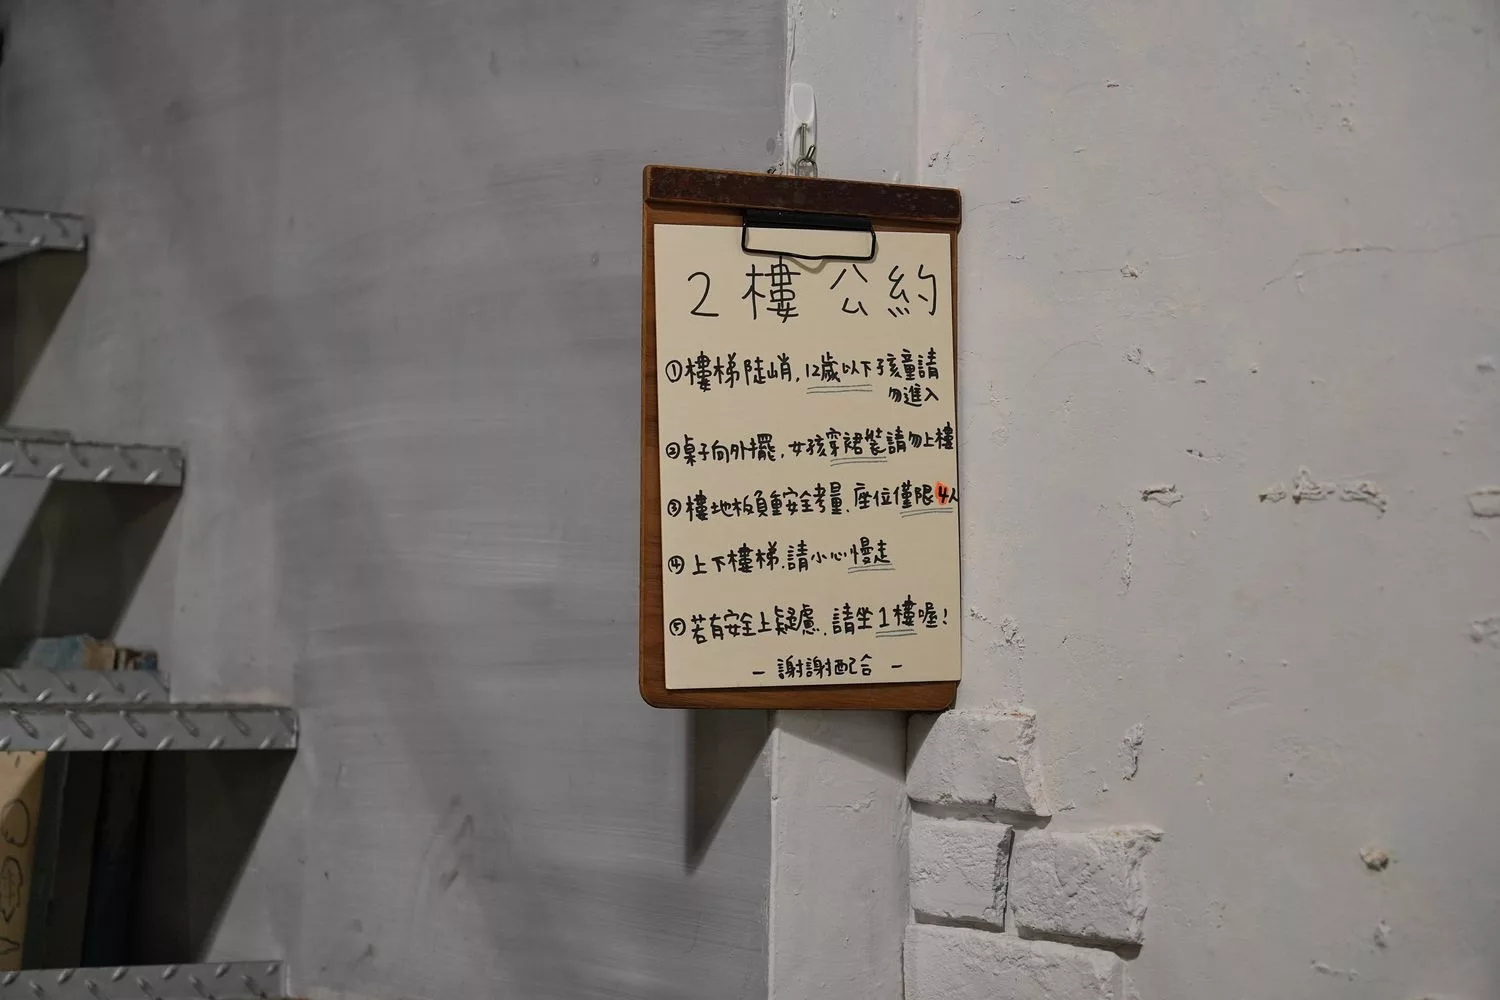 2樓公約
①樓梯陡峭,12歲以下孩童請
勿進入
②桌子向外擺,女孩穿裙裝請勿上樓
③樓地板負重安全考量,座位僅限4人
④上下樓梯,請小心慢走
⑤若有安全上疑慮,請坐1樓喔!
- 謝謝配合 -